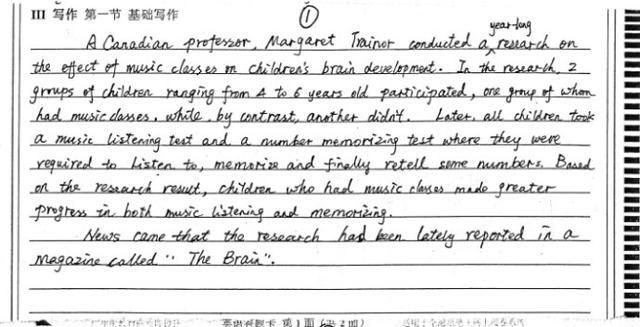 III 写作 第一节 基础写作
①
year-long
A Canadian professor, Margaret Trainor conducted a research on
the effect of music classes on children's brain development. In the research, 2
groups of children ranging from 4 to 6 years old participated, one group of whom
had music classes, while, by contrast, another didn't. Later, all children took
a music listening test and a number memorizing test where they were
required to listen to, memorize and finally retell some numbers. Based
on the research result, children who had music classes made greater
progress in both music listening and memorizing.
News came that the research had been lately reported in a
magazine called "The Brain".
英语答题卡 第1面